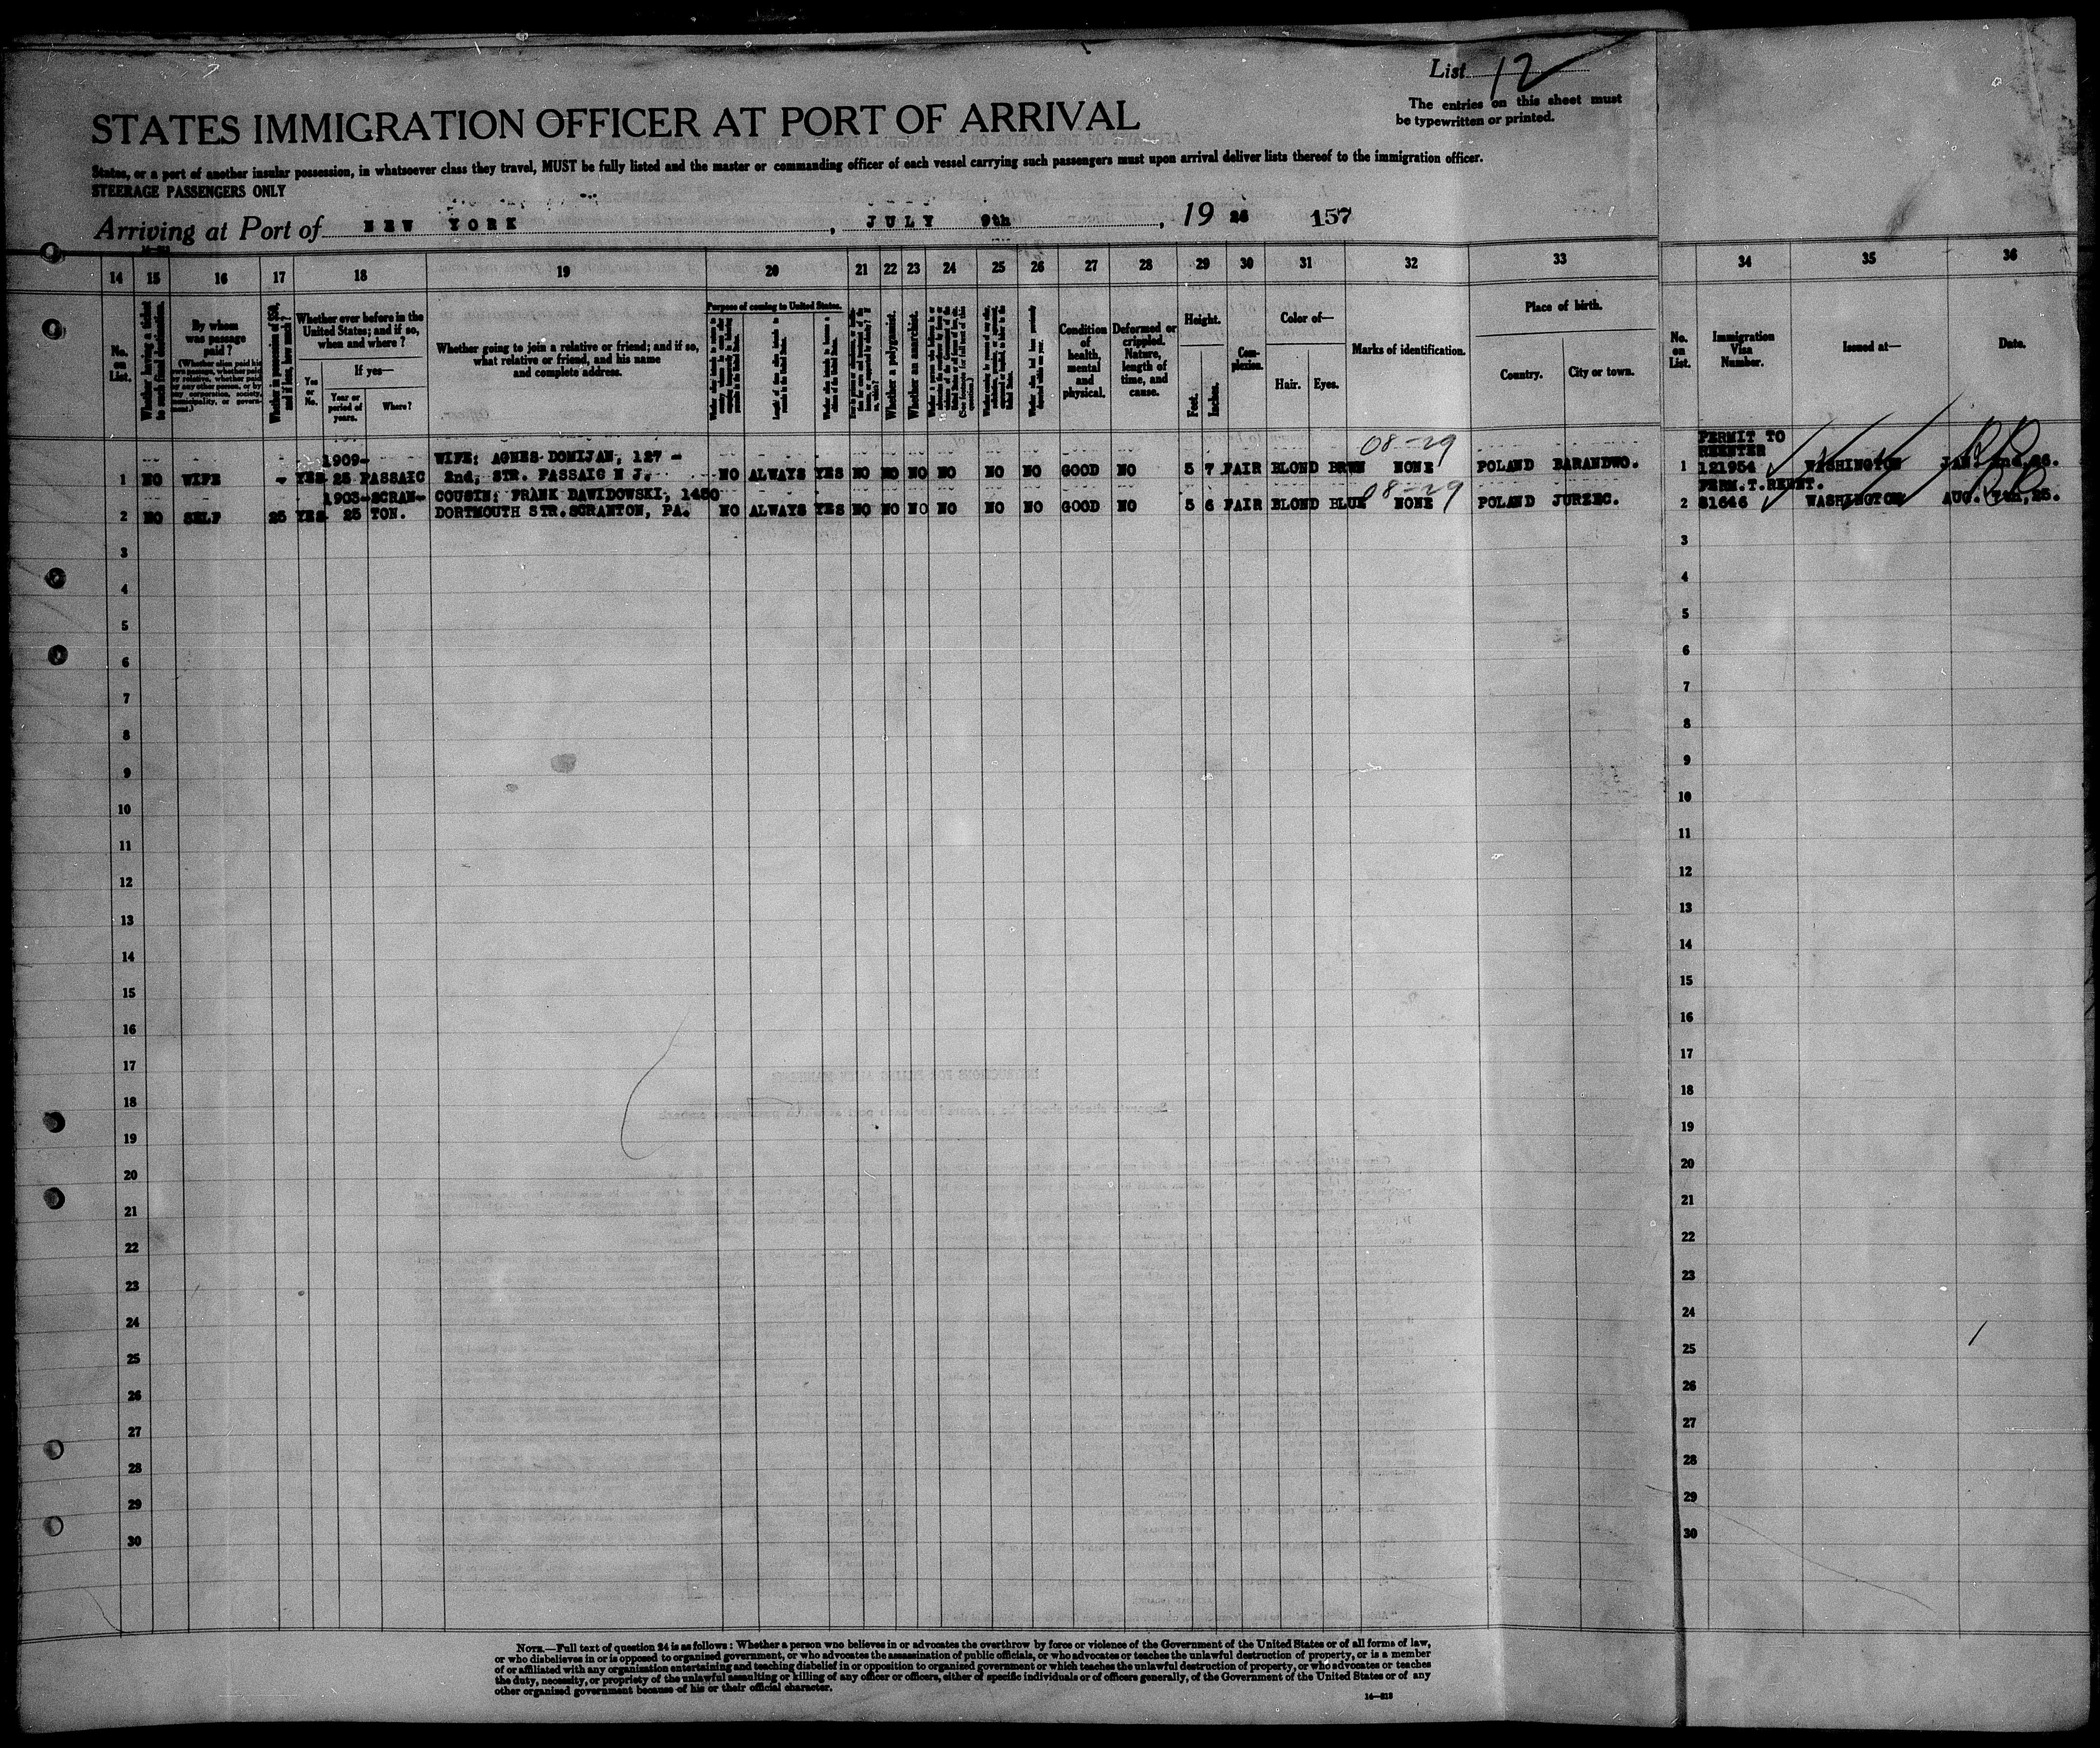 List 12
The entries on this sheet must
be typewritten or printed.
STATES IMMIGRATION OFFICER AT PORT OF ARRIVAL
States, or a port of another insular possession, in whatsoever class they travel, MUST be fully listed and the master or commanding officer of each vessel carrying such passengers must upon arrival deliver lists thereof to the immigration officer.
STEERAGE PASSENGERS ONLY
Arriving at Port of NEW YORK, JULY 9th, 19 26 157
14 15 16 17 18 19 20 21 22 23 24 25 26 27 28 29 30 31 32 33 34 35 36
No. on List.
Whether having a ticket to such final destination.
By whom was passage paid?
Whether in possession of $50, and if less, how much?
Whether ever before in the United States; and if so, when and where?
Yes or No.
If yes—
Year or period of years.
Where?
Whether going to join a relative or friend; and if so, what relative or friend, and his name and complete address.
Purpose of coming to United States.
Whether a polygamist.
Whether an anarchist.
Condition of health, mental and physical.
Deformed or crippled. Nature, length of time, and cause.
Height.
Feet.
Inches.
Complexion.
Color of—
Hair.
Eyes.
Marks of identification.
Place of birth.
Country.
City or town.
No. on List.
Immigration Visa Number.
Issued at—
Date.
08-29
PERMIT TO
REENTER
1909- WIFE: AGNES DOMIJAN, 127 -
1 NO WIFE - YES 25 PASSAIC 2nd, STR. PASSAIC N J. NO ALWAYS YES NO NO NO NO NO NO GOOD NO 5 7 FAIR BLOND BRWN NONE POLAND BARANDWO. 1 121954 WASHINGTON JAN. 2nd, 26.
1903-SCRAN- COUSIN: FRANK DAWIDOWSKI, 1450 08-29 PERM.T.REENT.
2 NO SELF 25 YES 25 TON. DORTMOUTH STR.SCRANTON, PA. NO ALWAYS YES NO NO NO NO NO NO GOOD NO 5 6 FAIR BLOND BLUE NONE POLAND JURZEC. 2 81646 WASHINGTON AUG. 25.
3 3
4 4
5 5
6 6
7 7
8 8
9 9
10 10
11 11
12 12
13 13
14 14
15 15
16 16
17 17
18 18
19 19
20 20
21 21
22 22
23 23
24 24
25 25
26 26
27 27
28 28
29 29
30 30
NOTE.—Full text of question 24 is as follows: Whether a person who believes in or advocates the overthrow by force or violence of the Government of the United States or of all forms of law,
or who disbelieves in or is opposed to organized government, or who advocates the assassination of public officials, or who advocates or teaches the unlawful destruction of property, or is a member
of or affiliated with any organization entertaining and teaching disbelief in or opposition to organized government or which teaches the unlawful destruction of property, or who advocates or teaches
the duty, necessity, or propriety of the unlawful assaulting or killing of any officer or officers, either of specific individuals or of officers generally, of the Government of the United States or of any
other organized government because of his or their official character.
14—313